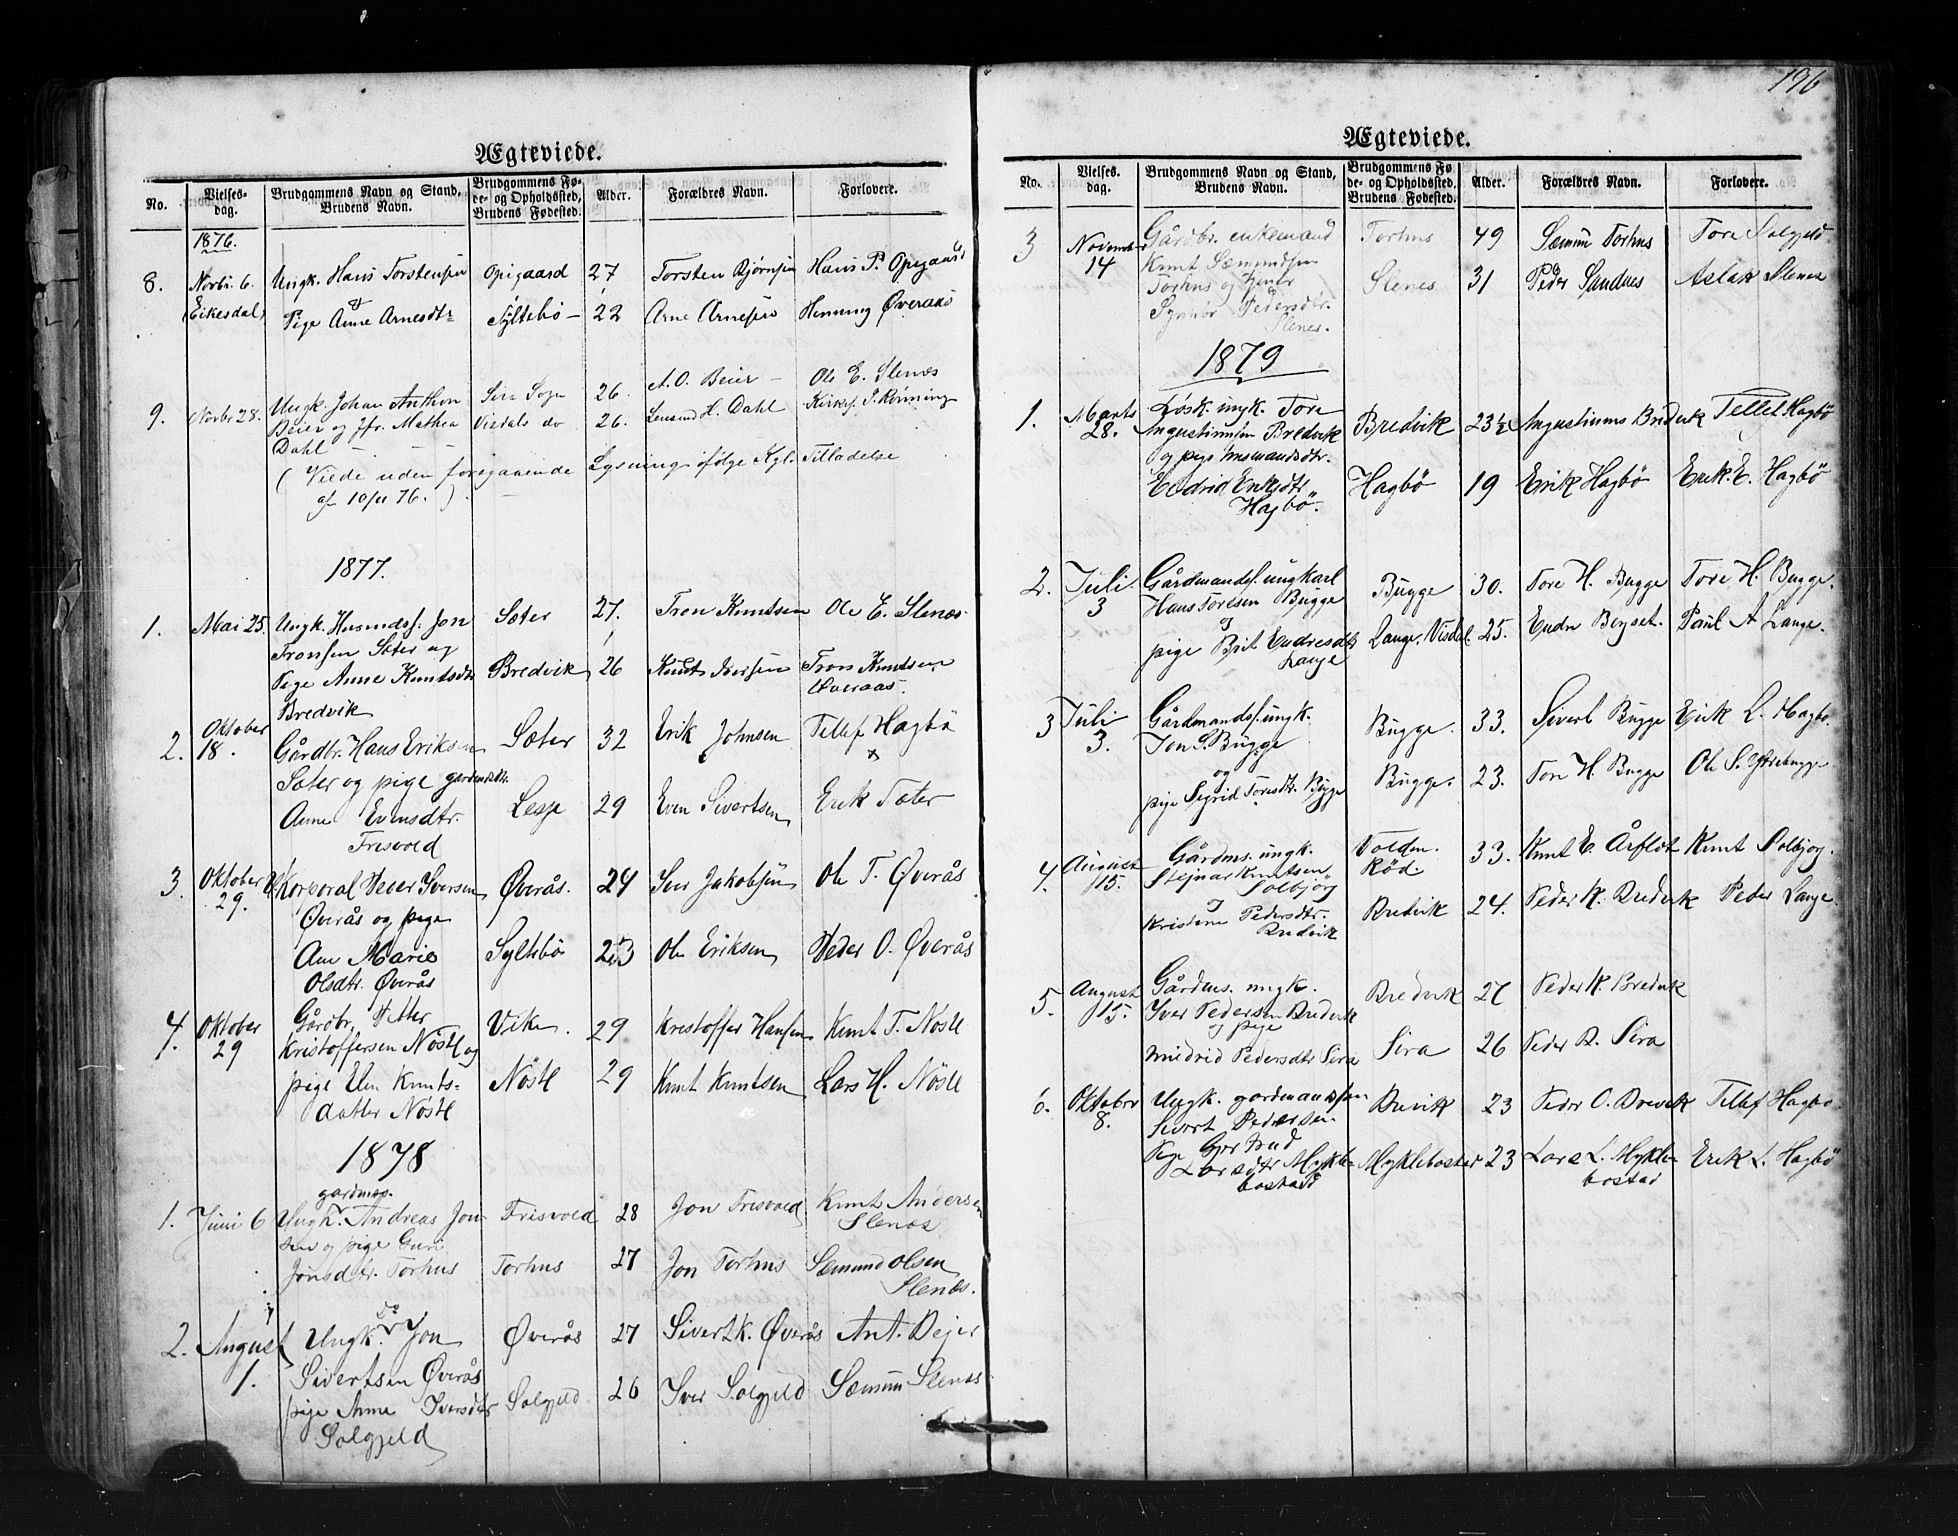 196
Ægteviede.
No. | Vielses-dag. | Brudgommens Navn og Stand, Brudens Navn. | Brudgommens Fø-de- og Opholdssted, Brudens Fødested. | Alder. | Forældres Navn. | Forlovere.
1876.
8. | Novbr. 6. | Ungk. Hans Torstensen | Opigaard | 27 | Torsten Bjørnsen | Hans P. Opigaard
(Eikesdal) | & Pige Anne Arnesdtr | Syltebø — | 22 | Arne Arnesen | Henning Øveraas
9. | Novbr 28. | Ungk. Johan Anthon | Sira Sogn | 26. | A. O. Beier — | Ole E. Slenæs
Beier og Jfr. Mathea | Visdals do | 26. | Lensmd H. Dahl | Kirkes. P. Rønning
Dahl —
( Viede uden foregaaende Lysning ifølge Kgl. Tilladelse
af 10/11 76. ).
1877.
1. | Mai 25. | Ungk. Husmdss. Jon | Sæter | 27. | Tron Knutsen | Ole E. Slenæs
Tronsen Sæter og
Pige Anne Knutsdtr | Bredvik | 26 | Knut Iversen | Tron Knutsen
Bredvik | Øveraas.
2. | Oktober 18. | Gårdbr. Hans Eriksen | Sæter | 32 | Erik Johnsen | Tellef Hagbö
Sæter og pige gardmdsdtr. | x
Anne Evensdtr. | Lesje | 29 | Even Sivertsen | Erik Sæter
Frisvold
3. | Oktober 29. | Korporal Peder Iversen | Øverås. | 24 | Iver Jakobsen | Ole T. Øverås
Øverås og pige
Ane Marie | Syltebø | 23 | Ole Eriksen | Peder O. Øverås
Olsdtr. Øverås
4. | Oktober 29 | Gårdbr. Petter | Vike. | 29 | Kristoffer Hansen | Knut T. Nöstl
Kristoffersen Nöstl og
pige Elen Knuts- | Nöstl | 29 | Knut Knutsen | Lars H. Nöstl
datter Nöstl
1878
gardmss.
1. | Juni 6 | Ungk. Andreas Jon- | Frisvold | 28 | Jon Frisvold | Knut Andersen
sen og pige Guri | Slenæs
Jonsdtr. Torhus | Torhus | 27 | Jon Torhus | Sæmund Olsen
Slenæs.
2. | August 1. | Ungk. do Jon | Øverås | 27 | Sivert K. Øverås | Ant. Bejer
Sivertsen Øverås
pige Anne Iversdtr | Solgjeld | 26 | Iver Solgjeld | Sæmun Slenæs
Solgjeld
Ægteviede.
No. | Vielses-dag. | Brudgommens Navn og Stand, Brudens Navn. | Brudgommens Fø-de- og Opholdssted, Brudens Fødested. | Alder. | Forældres Navn. | Forlovere.
3 | November 14 | Gårdbr. enkemand | Torhus | 49 | Sæmun Torhus | Tore Solgjeld
Knut Sæmundsen
Torhus og | Slenes | 31 | Peder Sandnes | Aslak Slenes
Synnör Pedersdtr.
Slenes.
1879
1. | Marts 28. | Løsk. ungk. Tore | Bredvik | 23½ | Augustinus Bredvik | Tellef Hagbö
Augustinusen Bredvik
og pige husmandsdtr.
Eldrid Eriksdtr. | Hagbö | 19 | Erik Hagbö | Erik E. Hagbö
Hagbö.
2. | Juli 3 | Gårdmandss. ungkarl | Bugge | 30. | Tore H. Bugge | Tore H. Bugge.
Hans Toresen Bugge
og
pige Brit Endresdtr | Lange, Visdal. | 25. | Endre Berset. | Paul A Lange.
Lange
3 | Juli 3. | Gårdmandss. ungk. | Bugge. | 33. | Sivert Bugge | Erik L. Hagbö.
Jon S. Bugge
og
pige Sigrid Toresdt. Bugge | Bugge. | 23. | Tore H. Bugge | Ole S. Ytrebugge
4. | August 15. | Gårdms. ungk. | Volden. Rød. | 33. | Knut E. Årflot | Knut Solbjørg.
Stejnar Knutsen
Solbjørg
og
Kristine Pedersdtr. | Bredvik | 24. | Peder K. Bredvik | Peder Lange.
Bredvik
5. | August 15. | Gårdms. ungk. | Bredvik | 27 | Peder K. Bredvik
Iver Pedersen Bredvik
og pige
Mildrid Pedersdtr Sira | Sira | 26 | Peder R. Sira
6. | Oktober 8. | Ungk. gardmandssøn | Brevik | 23 | Peder O. Brevik | Tellef Hagbø.
Sivert Pedersen.
Pige Gjertrud
Larsdtr Mykle- | Myklebostad | 23 | Lars L. Mykle- | Erik L. Hagbö
bostad | bostad